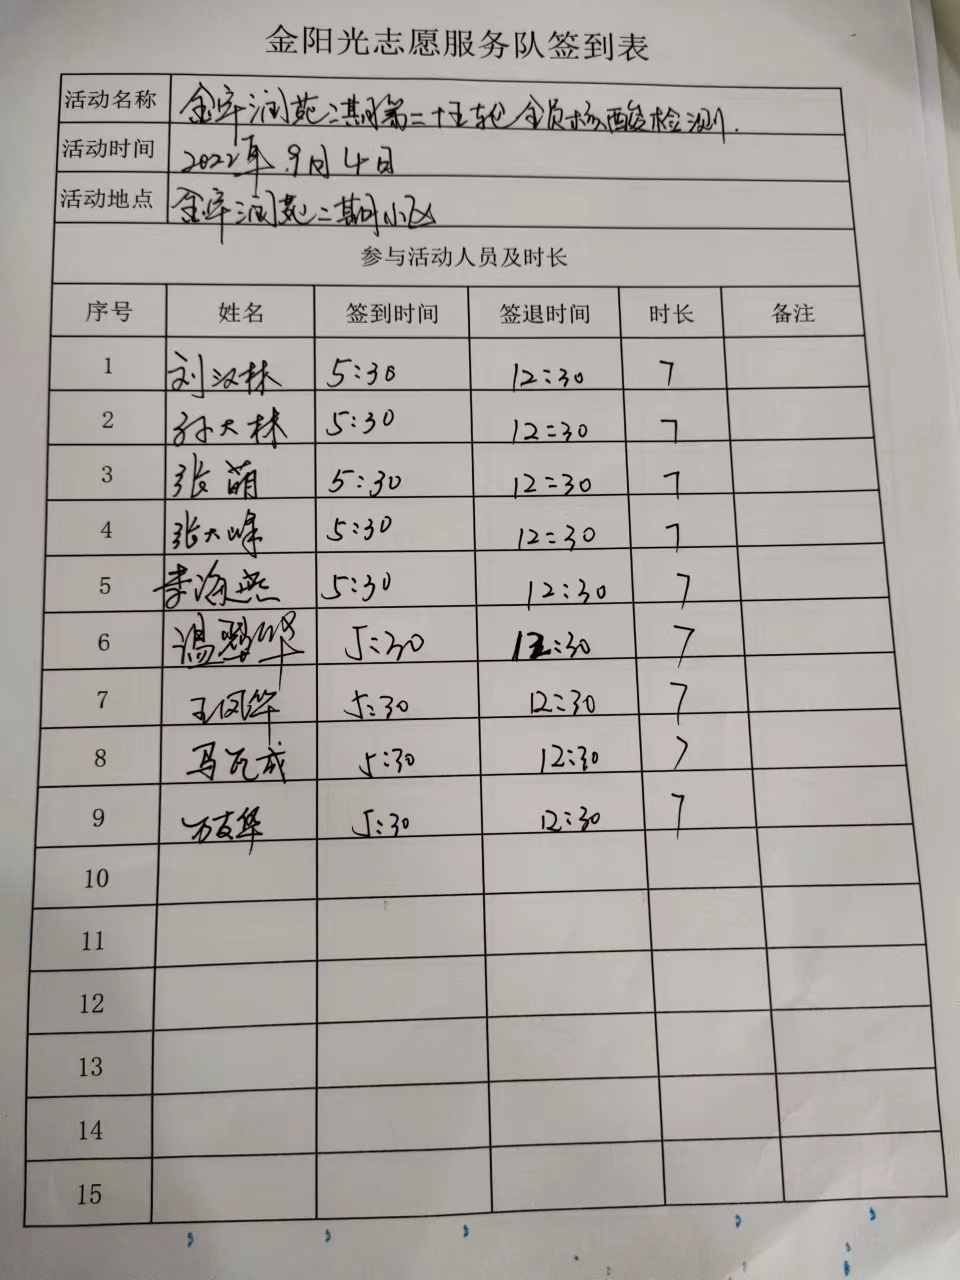 金阳光志愿服务队签到表
活动名称 金宇润苑二期第二十五轮全员核酸检测.
活动时间 2022年.9月4日
活动地点 金宇润苑二期小区
参与活动人员及时长
序号 姓名 签到时间 签退时间 时长 备注
1 刘汉林 5:30 12:30 7
2 孙大林 5:30 12:30 7
3 张萌 5:30 12:30 7
4 张大峰 5:30 12:30 7
5 李海燕 5:30 12:30 7
6 5:30 12:30 7
7 王凤华 5:30 12:30 7
8 马瓦成 5:30 12:30 7
9 万友华 5:30 12:30 7
10
11
12
13
14
15